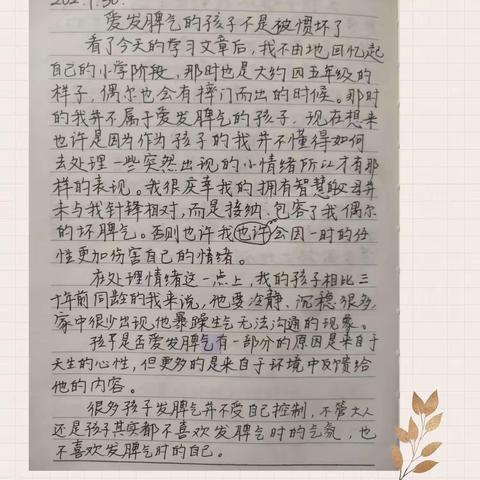 爱发脾气的孩子不是被惯坏了
看了今天的学习文章后，我不由地回忆起
自己的小学阶段，那时也是大约四五年级的
样子，偶尔也会有摔门而出的时候。那时
的我并不属于爱发脾气的孩子，现在想来
也许是因为作为孩子的我并不懂得如何
去处理一些突然出现的小情绪所以才有那
样的表现。我很庆幸我的拥有智慧的母亲并
未与我针锋相对，而是接纳、包容了我偶尔
的坏脾气。否则也许我也许会因一时的任
性更加伤害自己的情绪。
在处理情绪这一点上，我的孩子相比三
十年前同龄的我来说，他要冷静、沉稳很多，
家中很少出现他暴躁生气无法沟通的现象。
孩子是否爱发脾气有一部分的原因是来自于
天生的心性，但更多的是来自于环境中反馈给
他的内容。
很多孩子发脾气并不受自己控制，不管大人
还是孩子其实都不喜欢发脾气时的气氛，也
不喜欢发脾气时的自己。